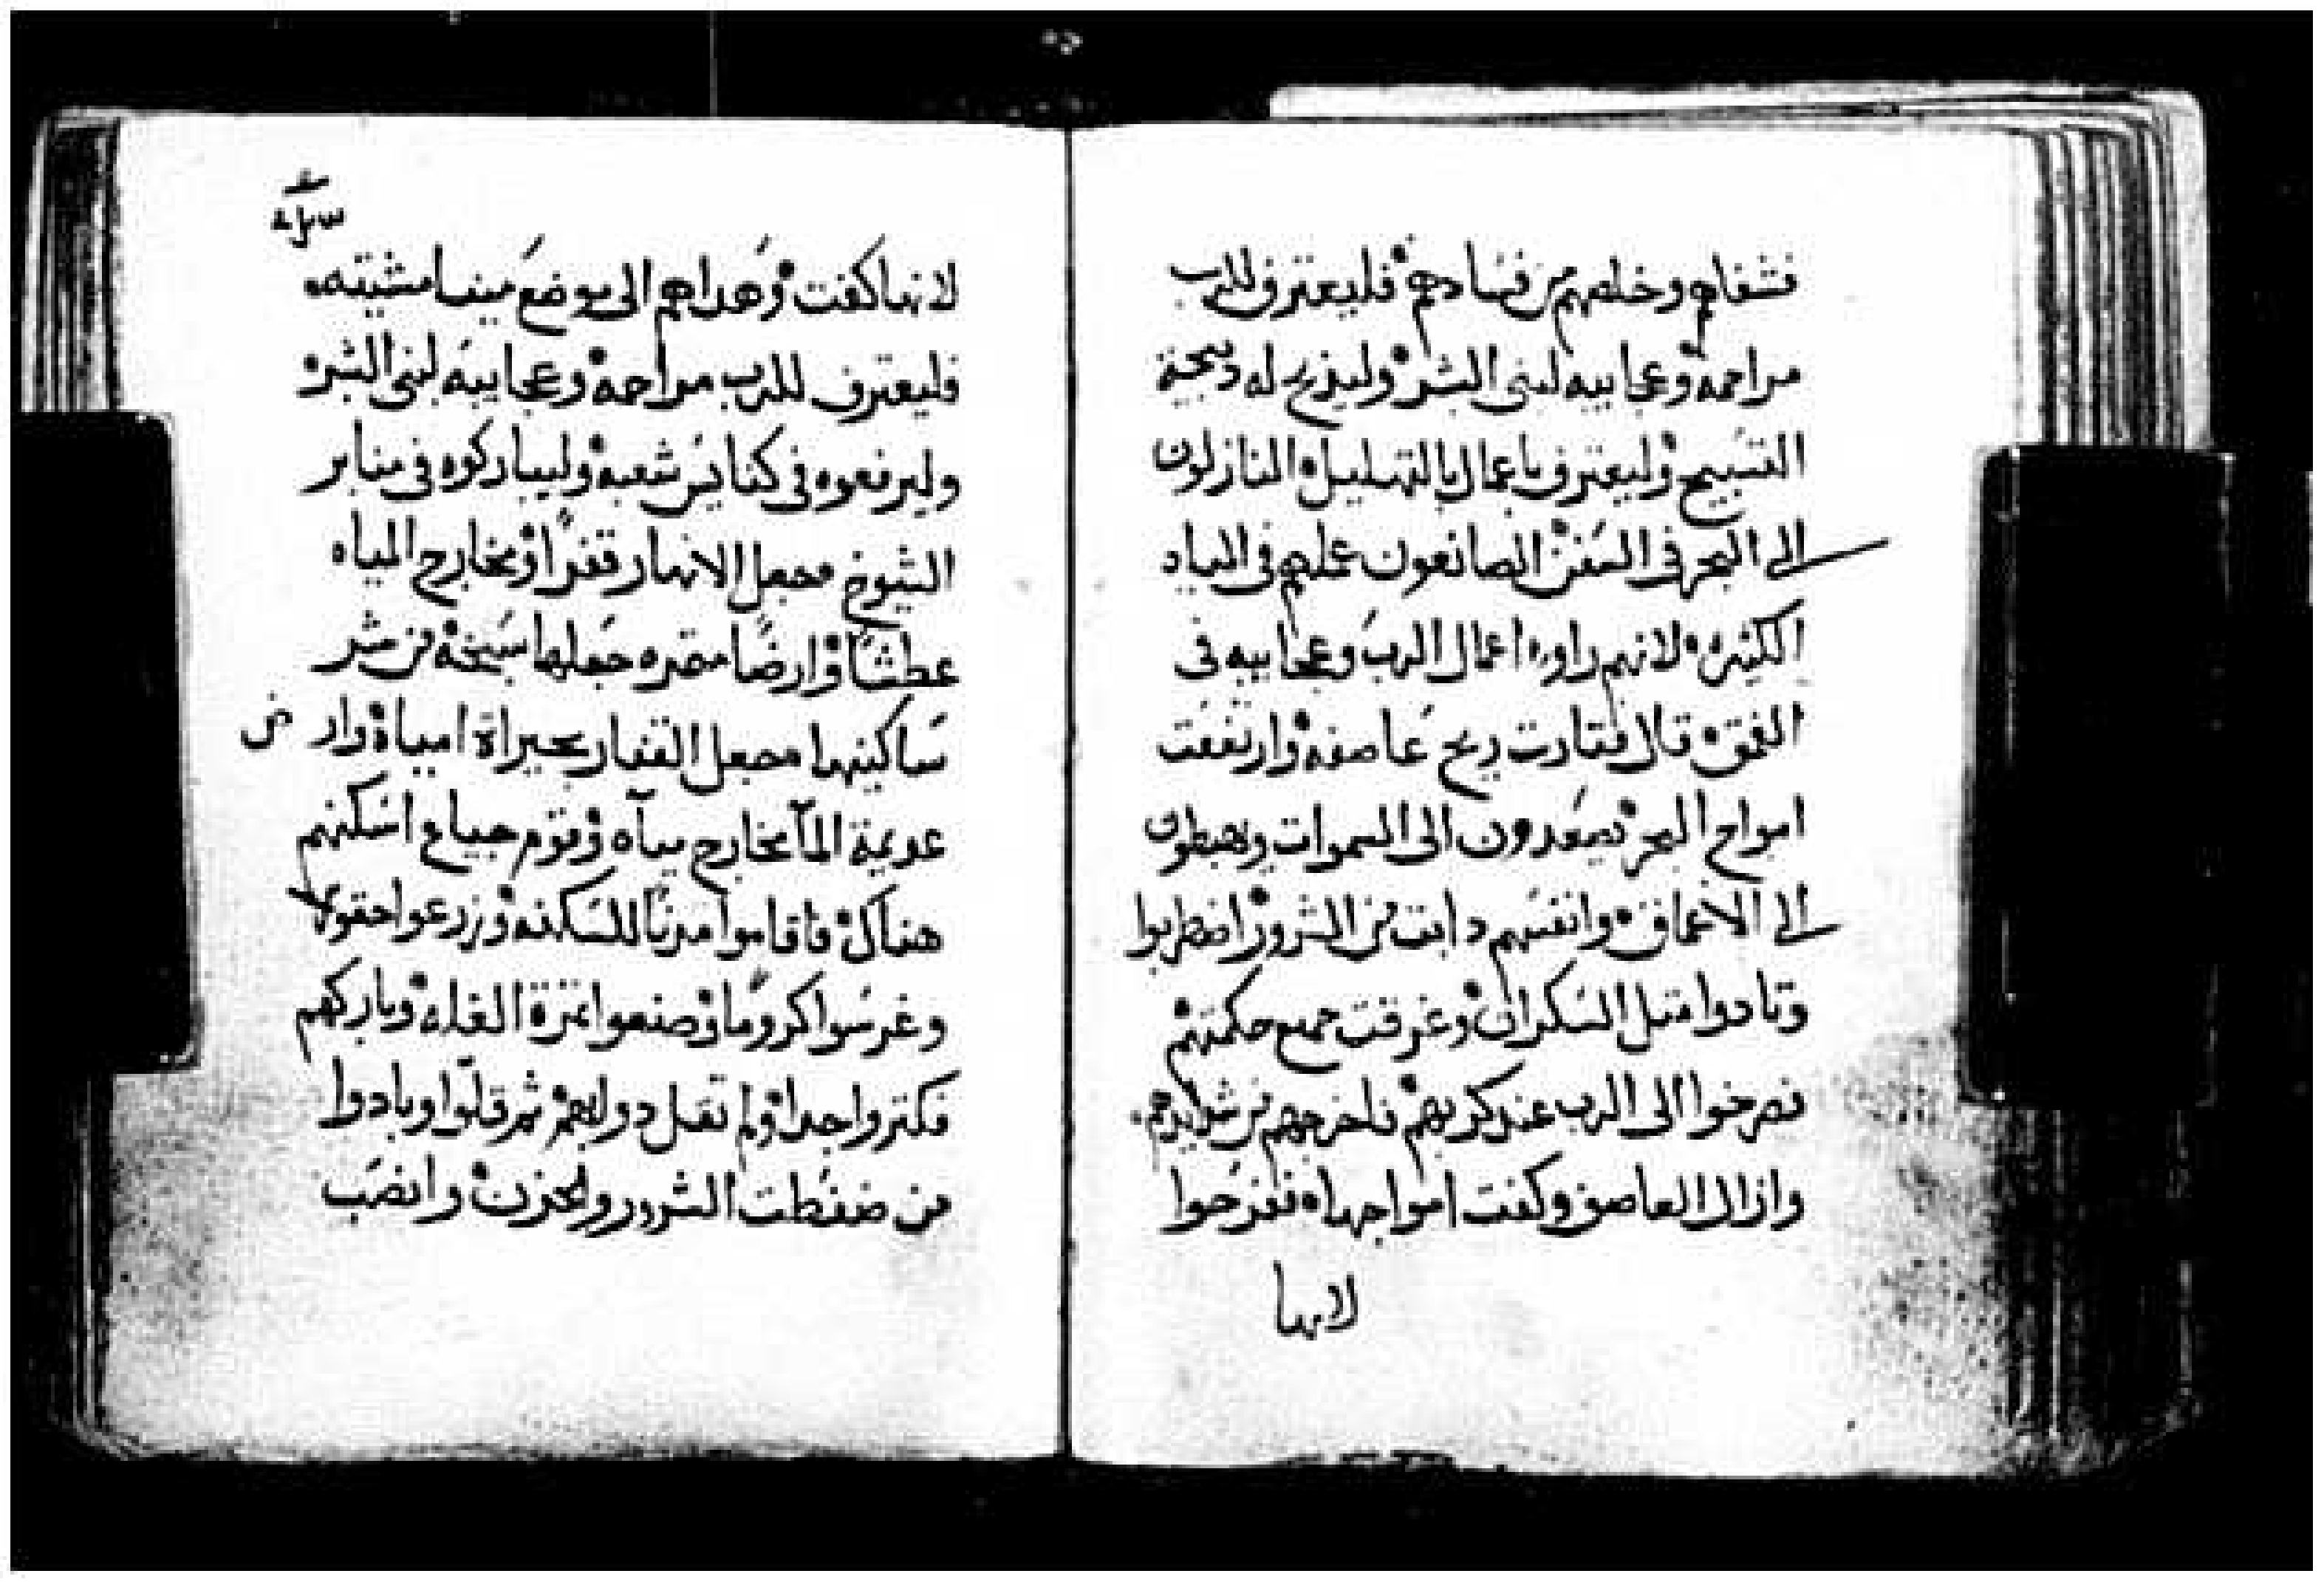 فشفاهم وخلصهم من فسادهم فليعترف للرب
مراحمه وعجايبه لبنى البشر وليذبح له ذبيحة
التسبيح وليعترف باعماله بالتهليل النازلون
الى البحر فى السفن الصانعون عملهم فى المياه
الكثيره لانهم راوا اعمال الرب وعجايبه فى
العمق قال فثارت ريح عاصفه وارتفعت
امواج البحر يصعدون الى السموات ويهبطون
الى الاعماق وانفسهم دابت من الشرور اضطربوا
وتادوا مثل السكران وغرقت جميع حكمتهم
فصرخوا الى الرب عند كربهم فاخرجهم من شدايدهم
وازال العاصف وكفت امواجها ففرحوا
لانها
لانها كفت وهداهم الى موضع مينا مشيته
فليعترف للرب مراحمه وعجايبه لبنى البشر
وليرفعوه فى كنايس شعبه وليباركوه فى منابر
الشيوخ جعل الانهار قفرا ومخارج المياه
عطشا وارضا مثمره جعلها سبخه من شر
ساكينها جعل القفار بحيراة امياه وارض
عديمة الماء مخارج مياه وقوم جياع اسكنهم
هناك فاقاموا مدنا للسكنه وزرعوا حقولا
وغرسوا كروما وصنعوا ثمرة الغله وباركهم
فكتروا جدا ولم تقل دوابهم ثم قلوا وبادوا
من ضغطت الشرور والحزن وانصب